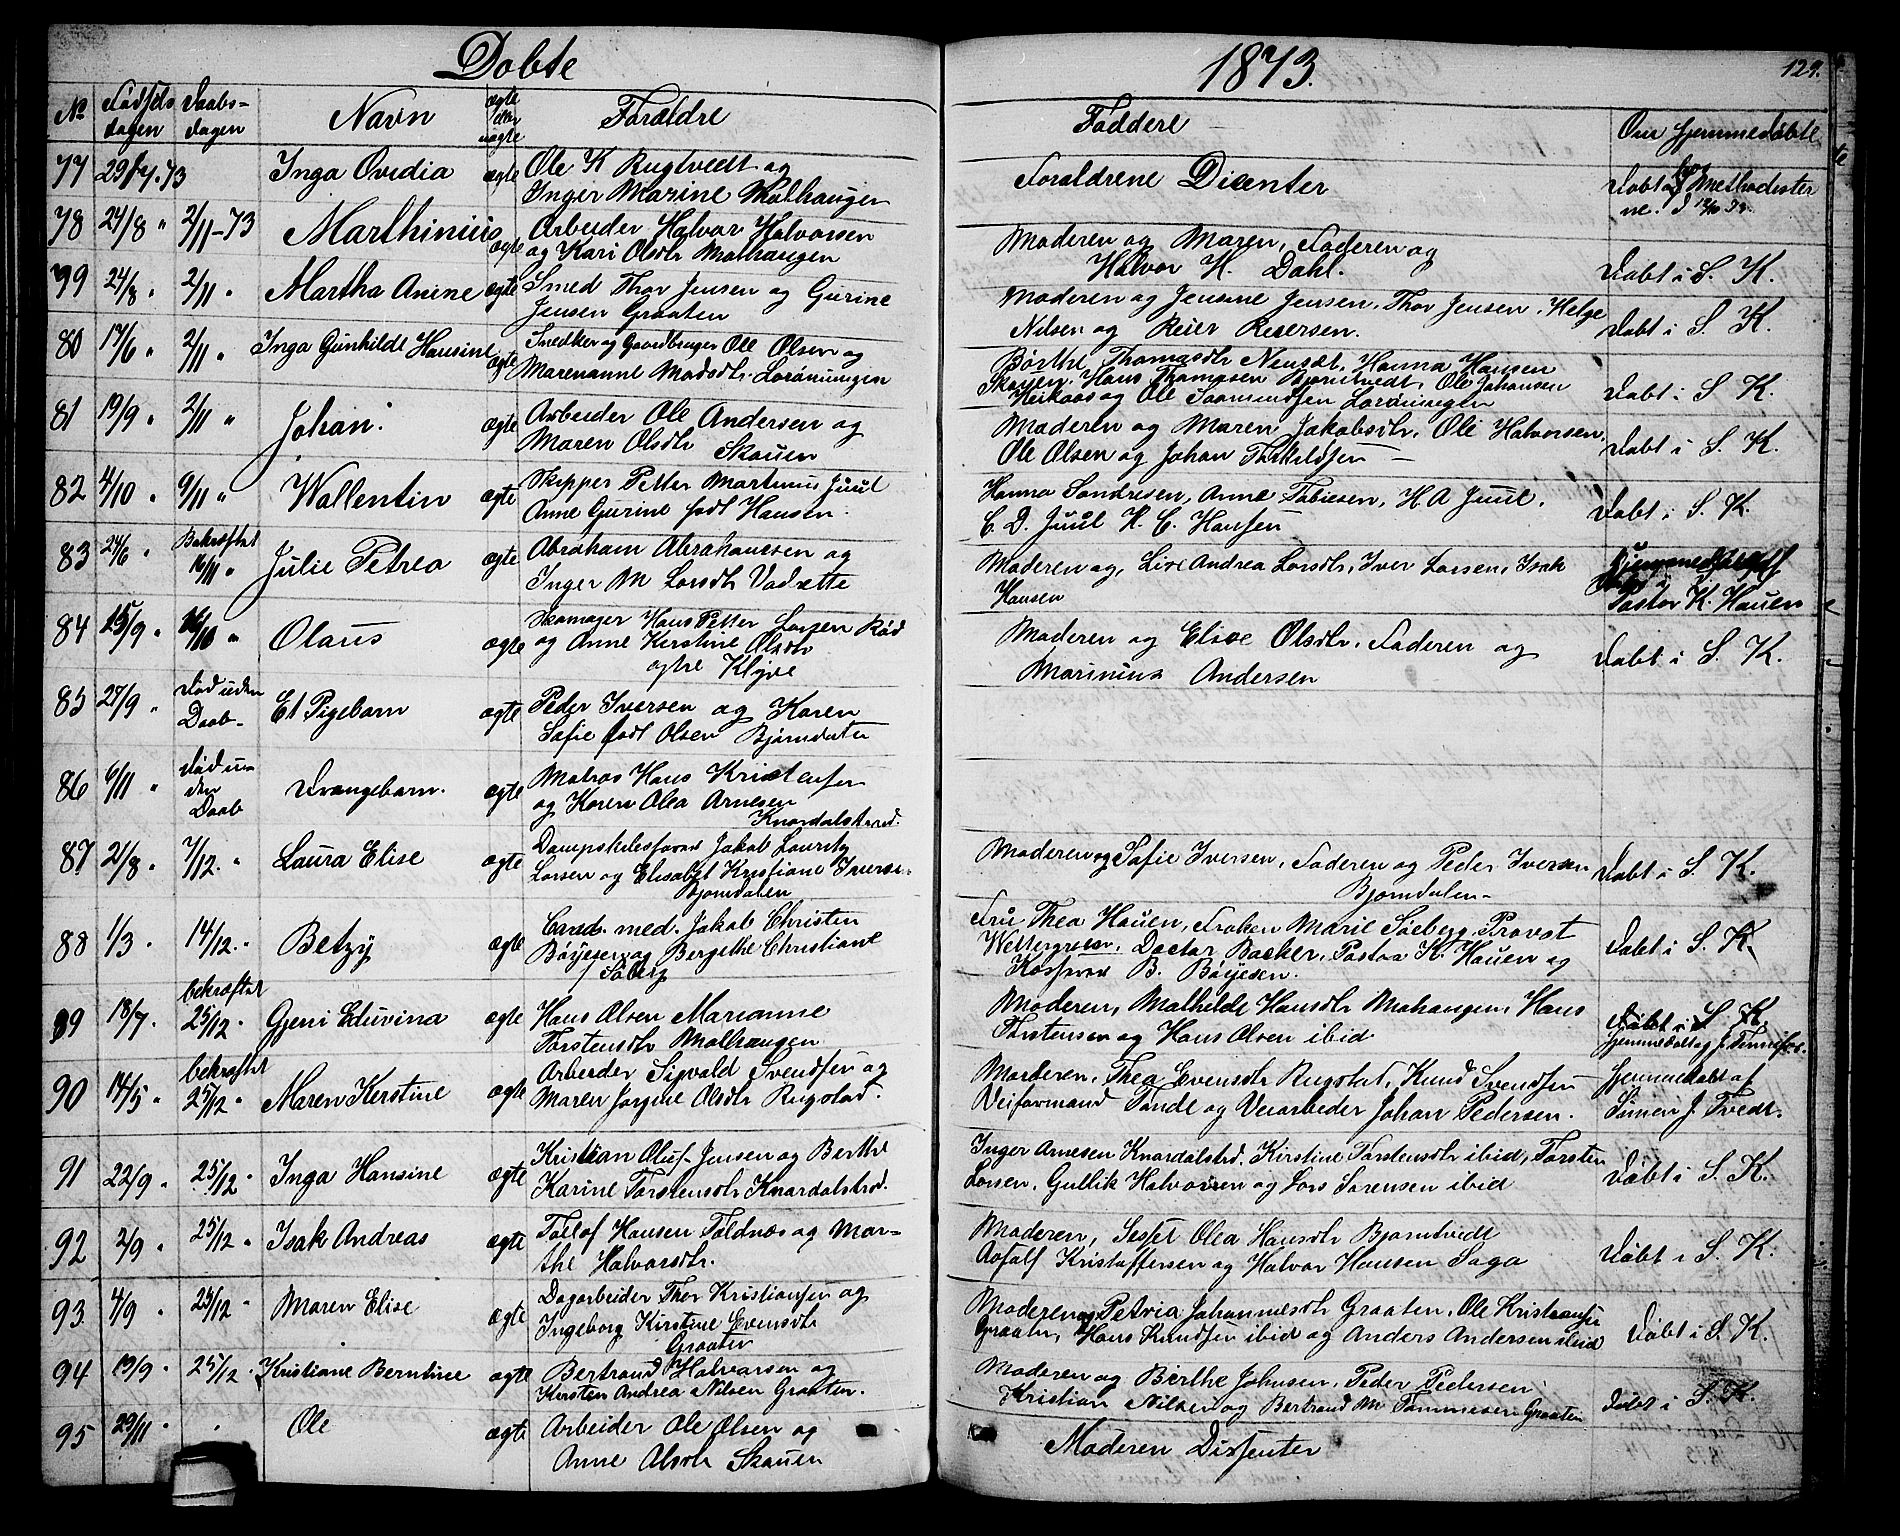 Døbte 1873. 129.
No Fødsels dagen Daabs- dagen Navn ægte eller uægte Forældre Faddere Om hjemmedøbte
77 29/4.73 Inga Ovidia ægte Ole K Rugtvedt og
Inger Marine Molhaugen
Forældrene Dicenter
Døbt Methodister
ne.
78 24/8 " 2/11-73 Marthinius ægte Arbeider Halvor Halvorsen
og Kari Olsdtr Molhaugen
Moderen og Maren, Faderen og
Halvor H. Dahl.
Døbt i S. K.
79 24/8 " 2/11 " Martha Anine ægte Smed Thor Jensen og Gurine
Jensen Graaten
Moderen og Jensine Jensen, Thor Jensen, Helge
Nilsen og Reier Reiersen.
Døbt i S. K.
80 17/6 " 2/11 " Inga Gunhilde Hansine ægte Snedker og Gaardbruger Ole Olsen og
Marenanne Madsdtr. Lønningen
Børthe Thomasdtr Nensæt, Hanna Hansen
Skoyen, Hans Thomesen Bjørntvedt, Ole Johansen
Heikaas og Ole Saamundsen
Døbt i S. K.
81 19/9 " 2/11 " Johan. ægte Arbeider Ole Andersen og
Maren Olsdtr Skauen
Moderen og Maren Jakobsdtr, Ole Halvorsen,
Ole Olsen og Johan Torkildsen —
Døbt i S. K.
82 4/10 " 9/11 " Wallentin ægte Skipper Petter Martinus Juul
Anne Gurine født Hansen.
Hanna Sondresen, Anne Tobiesen, H. A. Juul,
C. D. Juul H. C. Hansen
Døbt i S. K.
83 24/6 " Bekræftet
16/11 " Julie Petrea ægte Abraham Abrahamsen og
Inger M Larsdtr Vadrette
Moderen og, Live Andrea Larsdtr, Iver Larsen, Isak
Hansen
Pastor K. Hauen
84 25/9 " " Olaus ægte Skomager Hans Petter Larsen Rød
og Anne Kerstine Olsdtr
Klyve
Moderen og Elise Olsdtr, Faderen og
Marinius Andersen
Døbt i S. K.
85 27/9 " Død uden
Daab- Et Pigebarn ægte Peder Iversen og Karen
Sofie født Olsen Bjørndalen
86 6/11 " Død u-
den
Daab Drengebarn. ægte Matros Hans Kristensen
og Karen Olea Arnesen
Knardalstrand.
87 21/8 " 7/12. " Laura Elise ægte Dampskibsfører Jakob Lauritz
Larsen og Elisabet Kristiane Iverse-
Bjørndalen
Moderen og Sofie Iversen, Faderen og Peder Iversen
Bjørndalen-
Døbt i S. K.
88 1/3 " 14/12. " Betzy ægte Cand. med. Jakob Christen
Bøyesen og Bergithe Christiane
Søberg
Fru Thea Hauen, Frøken Marie Søeberg, Provst
Wettergreen, Doctor Backer, Pastor K. Hauen og
B. Bøyesen.
Døbt i S. K.
89 18/7. bekræftet
25/12 " Gjeni Eduvina ægte Hans Olsen Marianne
Torstensdtr Molhaugen
Moderen, Mathilde Hansdtr Mohaugen, Hans
Torstensen og Hans Olsen ibid
Døbt i S. K
hjemmedøbt af J.
90 14/5 " bekræftet
25/12 " Maren Kerstine ægte Arbeider Sigvald Svendsen og
Maren Jørgine Olsdtr Rugstad.
Moderen, Thea Evensdtr Rugstad, Knud Svendsen
Veiformand Tandt og Veiarbeder Johan Pedersen.
hjemmedøbt af
Simen J. Tvedt.
91 22/9 " 25/12 " Inga Hansine ægte Kristian Oluf Jensen og Berthe
Karine Torstensdtr Knardalstrd.
Inger Arnesen Knardalstrd. Kirstine Torstensdtr ibid, Torsten
Larsen, Gullik Halvorsen og Lars Sørensen ibid
Døbt i S. K.
92 2/9 " 25/12 " Isak Andreas ægte Tollof Hansen Foldnæs og Mar-
the Halvorsdtr.
Moderen, Sesset Olea Hansdtr Bjørntvedt
Kristoffersen og Halvor Hansen Saga
Døbt i S. K.
93 4/9 " 25/12 " Maren Elise ægte Dagarbeider Thor Kristiansen og
Ingeborg Kirstine Evensdtr
Graaten
Moderen og Petria Johannesdtr Graaten, Ole Kristiansen
Graaten, Hans Knudsen ibid og Anders Andersen ibid
Døbt i S. K.
94 13/9 " 25/12 " Kristiane Berntine ægte Bertrand Halvorsen og
Kirsten Andrea Nilsen Graaten.
Moderen og Berthe Johnsen, Peder Pedersen
Kristian Nilsen og Bertrand M. Tommesen Graaten
Døbt i S. K.
95 29/11 " " Ole ægte Arbeider Ole Olsen og
Anne Olsdtr Skauen
Moderen Dissenter